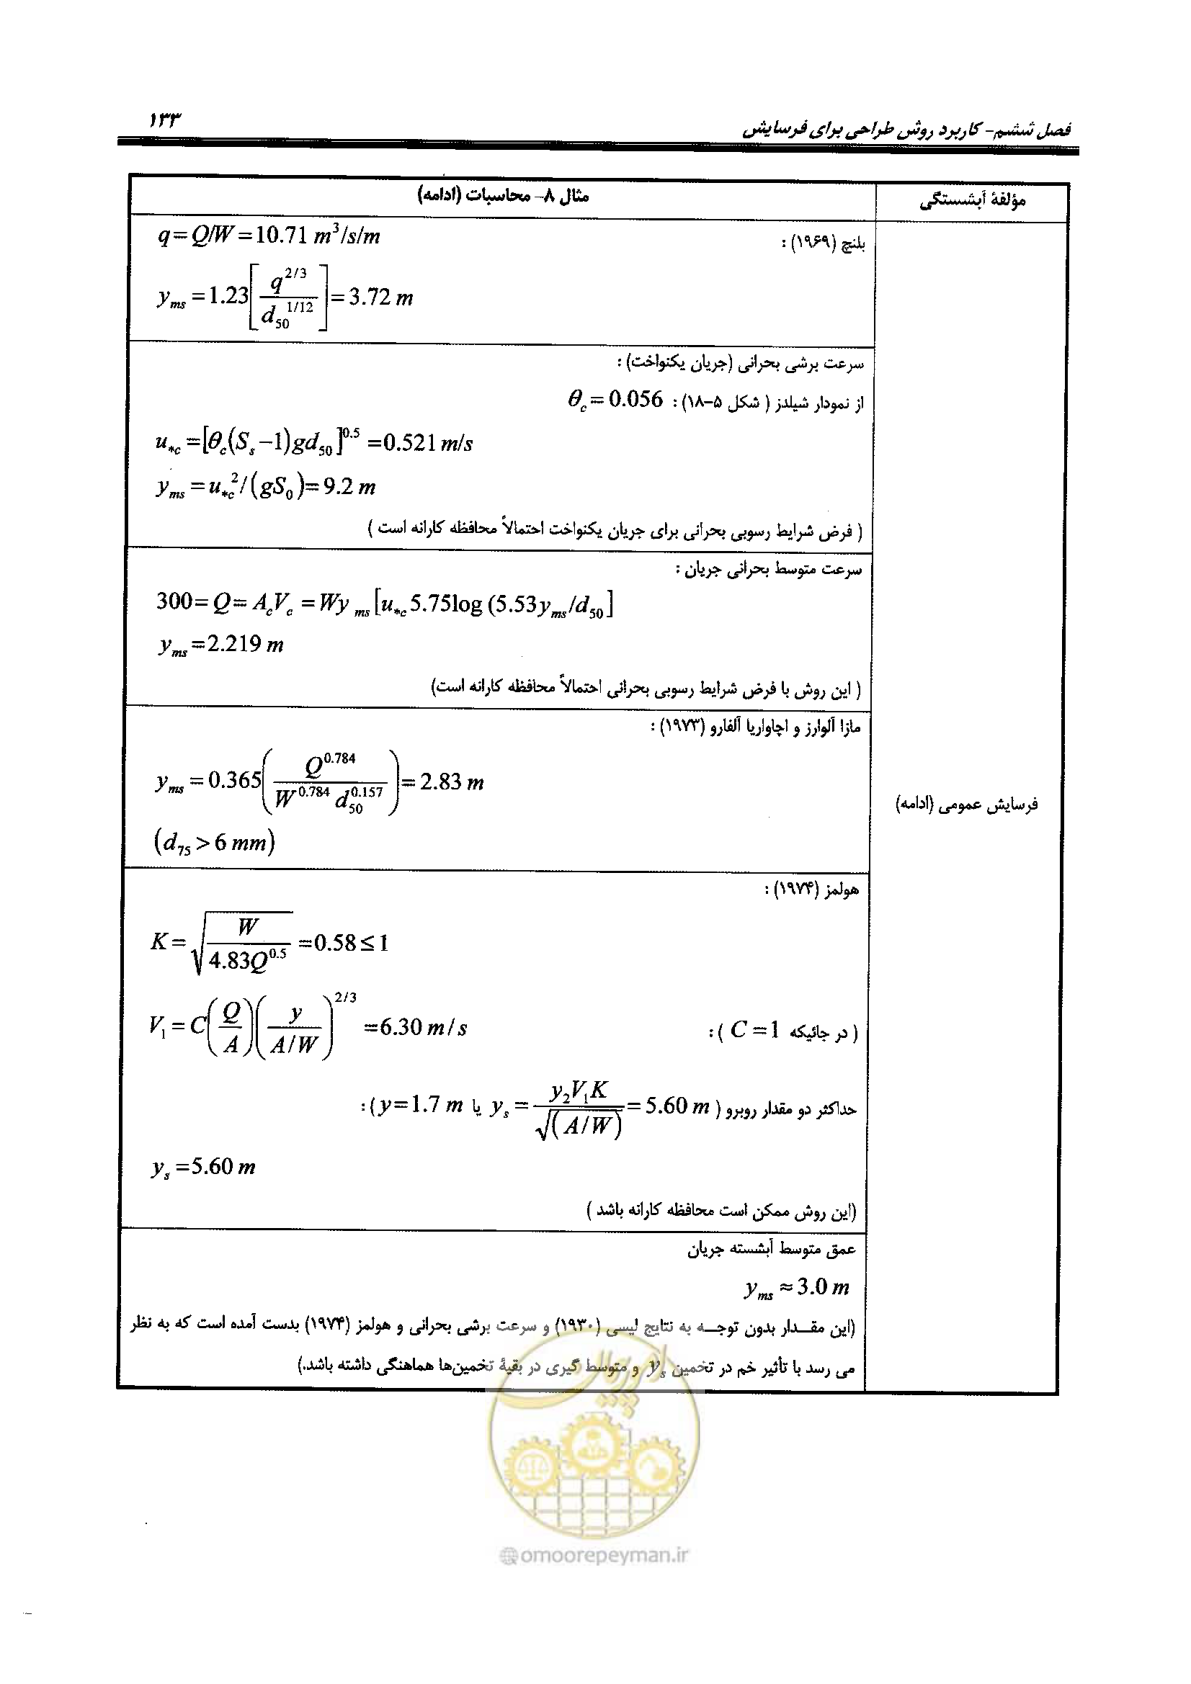 فصل ششم- کاربرد روش طراحی برای فرسایش ۱۳۳
مؤلفهٔ آبشستگی
مثال ۸- محاسبات (ادامه)
فرسایش عمومی (ادامه)
بلنچ (۱۹۶۹) :
q = Q/W = 10.71 m³/s/m
y_ms = 1.23[q^2/3 / d_50^1/12] = 3.72 m
سرعت برشی بحرانی (جریان یکنواخت) :
از نمودار شیلدز ( شکل ۵-۱۸) : θ_c = 0.056
u_*c = [θ_c(S_s −1)gd_50]^0.5 = 0.521 m/s
y_ms = u_*c²/(gS_0) = 9.2 m
( فرض شرایط رسوبی بحرانی برای جریان یکنواخت احتمالاً محافظه کارانه است )
سرعت متوسط بحرانی جریان :
300 = Q = A_cV_c = Wy_ms[u_*c 5.75log (5.53y_ms/d_50]
y_ms = 2.219 m
( این روش با فرض شرایط رسوبی بحرانی احتمالاً محافظه کارانه است)
مازا آلوارز و اچاواریا آلفارو (۱۹۷۳) :
y_ms = 0.365(Q^0.784 / W^0.784 d_50^0.157) = 2.83 m
(d_75 > 6 mm)
هولمز (۱۹۷۴) :
K = √(W / 4.83Q^0.5) = 0.58 ≤ 1
( در جائیکه C = 1 ) :
V_1 = C(Q/A)(y / A/W)^2/3 = 6.30 m/s
حداکثر دو مقدار روبرو ( y_s = y_2V_1K / √(A/W) = 5.60 m یا y = 1.7 m) :
y_s = 5.60 m
(این روش ممکن است محافظه کارانه باشد )
عمق متوسط آبشسته جریان
y_ms ≈ 3.0 m
(این مقدار بدون توجه به نتایج لیسی (۱۹۳۰) و سرعت برشی بحرانی و هولمز (۱۹۷۴) بدست آمده است که به نظر
می رسد با تأثیر خم در تخمین y_s و متوسط گیری در بقیهٔ تخمین‌ها هماهنگی داشته باشد.)
امور پیمان
@omoorepeyman.ir